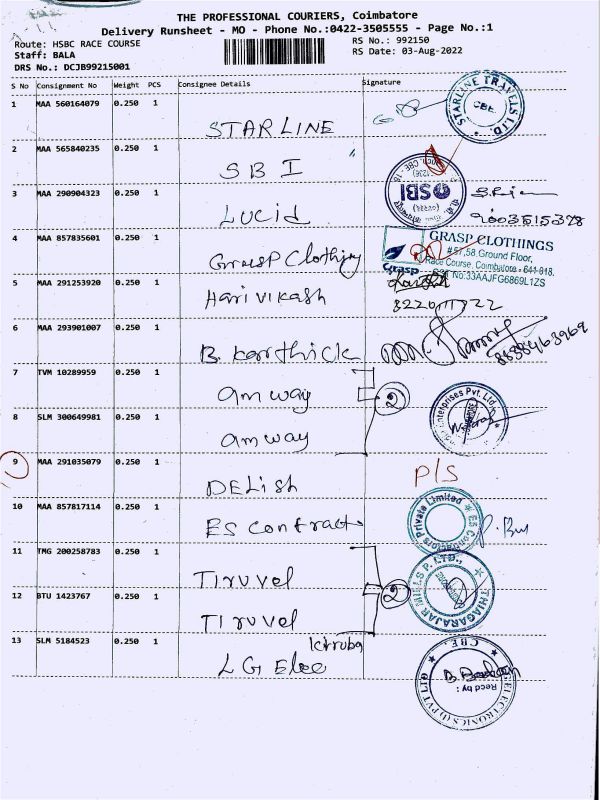 THE PROFESSIONAL COURIERS, Coimbatore
Delivery Runsheet - MO - Phone No.:0422-3505555 - Page No.:1
Route: HSBC RACE COURSE
RS No.: 992150
Staff: BALA
RS Date: 03-Aug-2022
DRS No.: DCJB99215001
S No Consignment No Weight PCS Consignee Details Signature
1 MAA 560164079 0.250 1
STARLINE
STARLINE TRAVELS LTD.
CBE
2 MAA 565840235 0.250 1
SBI
SBI
3 MAA 290904323 0.250 1
Lucid
9003515378
4 MAA 857835601 0.250 1
Grasp Clothing
Grasp
GRASP CLOTHINGS
#57,58 Ground Floor,
Race Course, Coimbatore - 641 018.
GST No:33AAJFG6869L1ZS
5 MAA 291253920 0.250 1
Hari vikash
6 MAA 293901007 0.250 1
B. karthick
7 TVM 10289959 0.250 1
am way
2
8 SLM 300649981 0.250 1
am way
Enterprises Pvt. Ltd.
9 MAA 291035079 0.250 1
DELish
P/S
10 MAA 857817114 0.250 1
ES contracts
Private Limited
11 TMG 200258783 0.250 1
Tiruvel
2
THIAGARAJAR MILLS P. LTD.,
12 BTU 1423767 0.250 1
Tiruvel
13 SLM 5184523 0.250 1
LG Elec
CBE
ELECTRONICS (I) PVT LTD
Recd by :